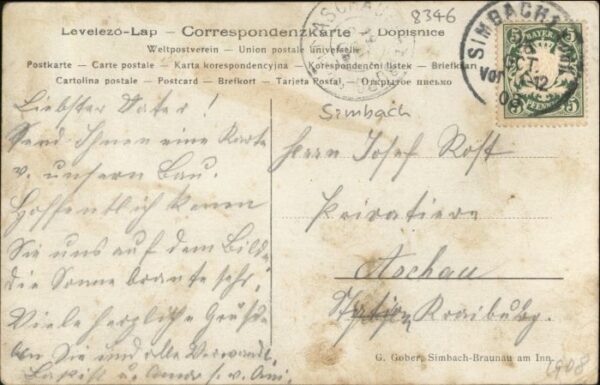 Levelezö-Lap — Correspondenzkarte — Dopisnice
Weltpostverein — Union postale universelle
Postkarte — Carte postale — Karta korespondencyjna — Korespondenční listek — Briefkart
Cartolina postale — Postcard — Brefkort — Tarjeta Postal — Открытое письмо
8346
SIMBACH
OCT.
08
BAYERN
5 5
PFENNIG
ASCHAU
Simbach
Liebster Vater!
Send Ihnen eine Karte
v. unsern Bau.
Hoffentlich kenen
Sie uns auf dem Bilde
die Sonne brante sehr,
Viele herzliche Grüße
an Sie und alle Verwandt.
Herrn Josef Rost
Privatier
Aschau
Kraibubg.
G. Gober, Simbach-Braunau am Inn.
1908